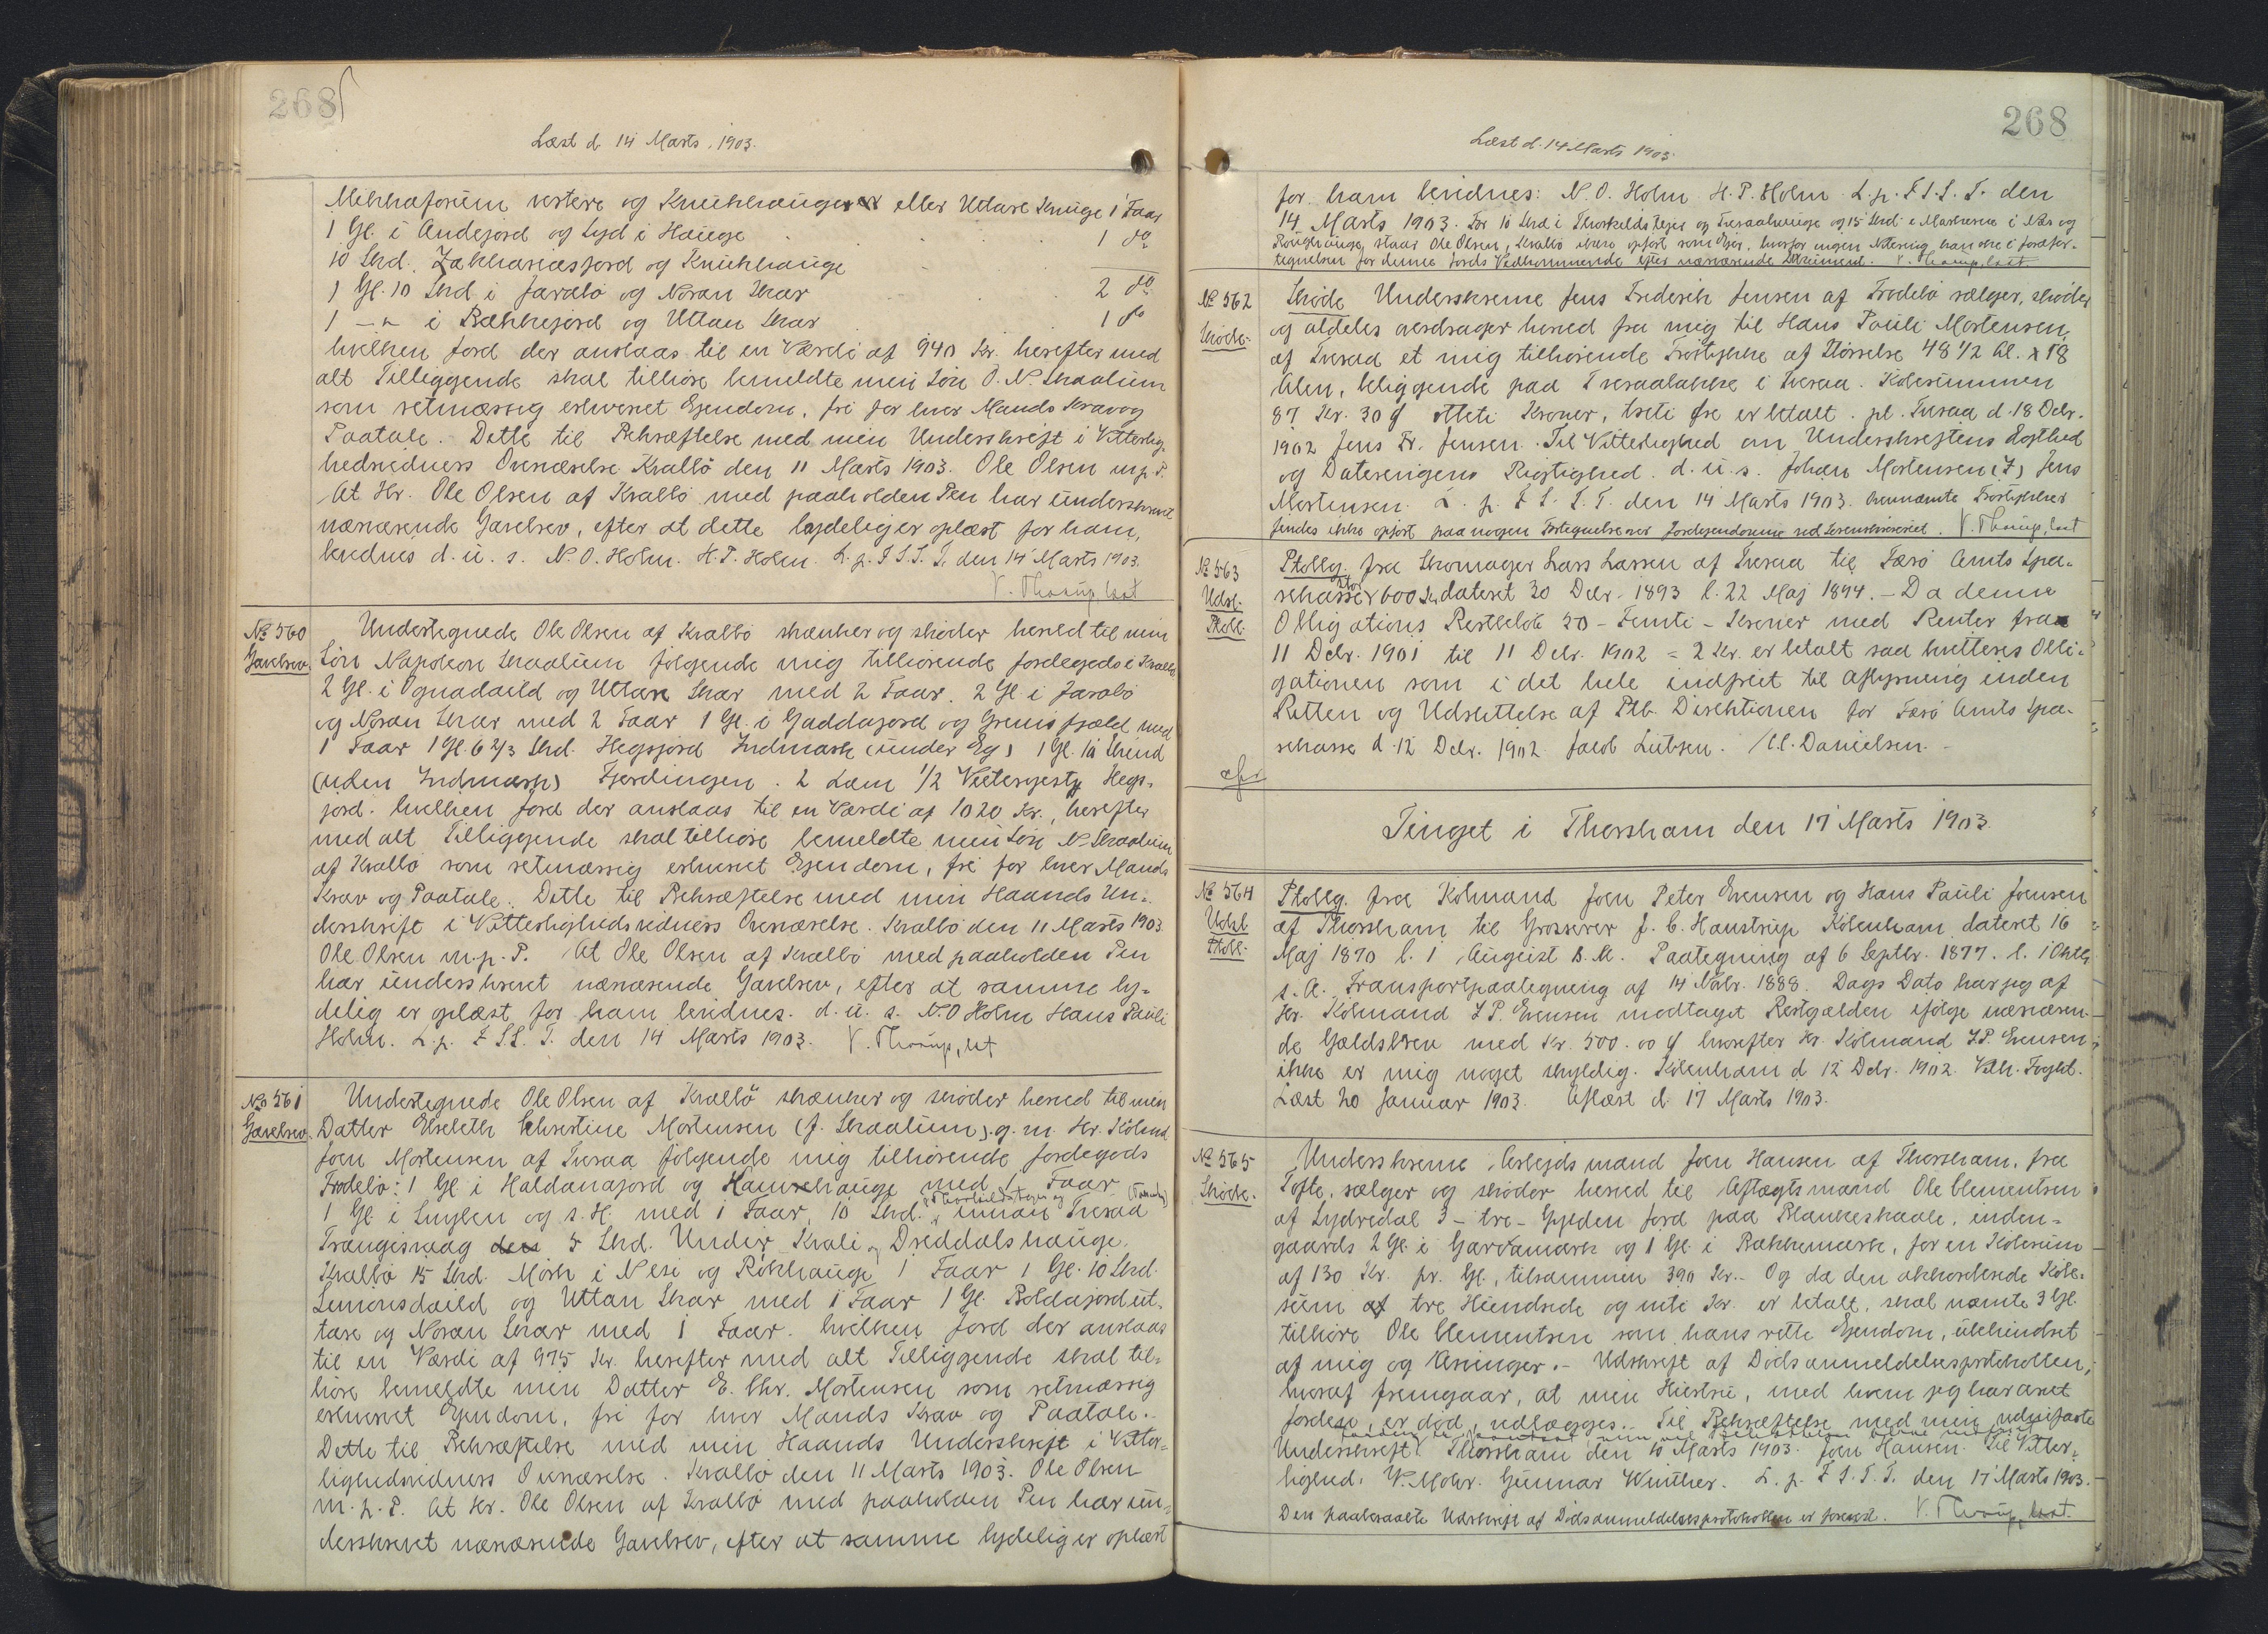 268
Læst d. 14 Marts 1903.
Mikkaforum vestere og Knukhauge eller Uttare Hauge 1 Faar
1 Gl. i Andejord og Syd i Hauge 1 do
10 Skd. Zakkariasjord og Knukhauge
1 Gl. 10 Skd i Jaralö og Noran Skar 2 do
1 -"- i Bakkejord og Uttan Skar 1 do
hvilken Jord der anslaas til en Værdi af 940 Kr. herefter med
alt Tilliggende skal tilhöre bemeldte min Sön O. N. Skaalum
som retmæssig erhvervet Ejendom, fri for hver Mands Krav og
Paatale. Dette til Bekræftelse med min Underskrift i Vitterlig-
hedsvidners Overværelse Kvalbö den 11 Marts 1903. Ole Olsen m. p. P.
At Hr. Ole Olsen af Kvalbö med paaholden Pen har underskrevet
nærværende Gavebrev, efter at dette lydelig er oplæst for ham,
bevidnes d. u. s. N. O. Holm. H. P. Holm. L. p. F. S. S. T. den 14 Marts 1903.
V. Thorup, kst
No 560
Gavebrev.
Undertegnede Ole Olsen af Kvalbö skænker og sköder herved til min
Sön Napoleon Skaalum fölgende mig tilhörende Jordegods i Kvalbö
2 Gl. i Ognadaild og Uttare Skar med 2 Faar. 2 Gl i Jaralö
og Noran Skar med 2 Faar 1 Gl. i Gaddajord og Grims fjæld med
1 Faar 1 Gl. 6 2/3 Skd. Hegsjord Indmark (under Eg) 1 Gl. 10 Skind
(uden Indmark) Fjerdingen. 2 Lam 1/2 Hegs-
jord. hvilken Jord der anslaas til en Værdi af 1020 Kr., herefter
med alt Tilliggende skal tilhöre bemeldte min Sön N. Skaalum
af Kvalbö som retmæssig erhvervet Ejendom, fri for hver Mands
Krav og Paatale. Dette til Bekræftelse med min Haands Un-
derskrift i Vitterlighedsvidners Overværelse. Kvalbö den 11 Marts 1903
Ole Olsen m. p. P. At Ole Olsen af Kvalbö med paaholden Pen
har underskrevet nærværende Gavebrev, efter at samme ly-
delig er oplæst for ham bevidnes. d. u. s. N. O Holm Hans Pauli
Holm. L. p. F. S. S. T. den 14 Marts 1903. V. Thorup, kst
No 561
Gavebrev.
Undertegnede Ole Olsen af Kvalbö skænker og sköder herved til min
Datter Elsebeth Christine Mortensen (f. Skaalum) g. m. Hr. Kölmd
Joen Mortensen af Tveraa fölgende mig tilhörende Jordegods
Frodebö: 1 Gl i Haldanajord og Hamrehauge med 1 Faar
1 Gl i Suyben og s. H. med 1 Faar, 10 Skd. i Thorkildsteger og innan Tveraa
Trangisvaag 5 Skd. Under Krali og Dreddalshauge.
Kvalbö 15 Skd. Mörk i Nesi og Rökhauge 1 Faar 1 Gl. 10 Skd.
Simonsdaild og Uttan Skar med 1 Faar 1 Gl. Boldajord ut-
tare og Noran Skar med 1 Faar. hvilken Jord der anslaas
til en Værdi af 975 Kr. herefter med alt Tilliggende skal til-
höre bemeldte min Datter E. Chr. Mortensen som retmæssig
erhvervet Ejendom, fri for hver Mands Krav og Paatale.
Dette til Bekræftelse med min Haands Underskrift i Vitter-
lighedsvidners Overværelse. Kvalbö den 11 Marts 1903. Ole Olsen
m. p. P. At Hr. Ole Olsen af Kvalbö med paaholden Pen har un-
derskrevet nærværende Gavebrev, efter at samme lydelig er oplæst
268
Læst d. 14 Marts 1903.
for ham bevidnes: N. O. Holm H. P. Holm L. p. F. S. S. T. den
14 Marts 1903. For 10 Skd i Thorkelds teger og Tveraahauge og 15 Skd i Markerne i Næs og
Rougehauge, staar Ole Olsen, Kvalbö ikke opfört som Ejer, hvorfor ingen Notering kan ske i Jordefor-
tegnelsen for denne Jords Vedkommende efter nærværende Dokument. V. Thorup, kst.
No 562
Skøde.
Skøde Underskrevne Jens Frederik Jensen af Frodebö sælger, skøder
og aldeles overdrager herved fra mig til Hans Pauli Mortensen,
af Tveraa et mig tilhörende Tröstykke af Störrelse 48 1/2 Al. x 18
Alen, beliggende paa Tveraabakke i Tveraa. Köbesummen
87 Kr. 30 Ø otteti Kroner, treti Øre er betalt. pt. Tveraa d. 18 Debr.
1902 Jens Fr. Jensen. Til Vitterlighed om Underskriftens Ægthed
og Dateringens Rigtighed. d. u. s. Johan Mortensen (F) Jens
Mortensen. L. p. F. S. S. T. den 14 Marts 1903. Ovennævnte Tröstykke
findes ikke opfört paa nogen Fortegnelse over Jordejendomme ved Sorenskriveriet. V. Thorup, kst
No 563
Udsl.
Ptobl.
Ptoblg. fra Skomager Lars Larsen af Tveraa til Færö Amts Spa-
rekasse stor 600 Kr. dateret 30 Debr. 1893 l. 22 Maj 1894. - Da denne
Obligations Restbelöb 50 - Femti - Kroner med Renter fra
11 Debr. 1901 til 11 Debr. 1902 = 2 Kr. er betalt saa kvitteres Obli-
gationen som i det hele indfriet til Aflysning inden
Retten og Udslettelse af Ptb. Direktionen for Færö Amts Spa-
rekasse d. 12 Debr. 1902 Jacob Lützen. C. C. Danielsen.
Tinget i Thorshavn den 17 Marts 1903.
No 564
Udsl
Ptobl.
Ptoblg. fra Kölmand Joen Peter Evensen og Hans Pauli Joensen
af Thorshavn til Grosserer J. C. Haustrup Köbenhavn dateret 16
Maj 1870 l. 1 August s. A. Paategning af 6 Septbr. 1877. l. 1 Oktb.
s. A. Transportpaategning af 14 Novbr. 1888. Dags Dato har jeg af
Hr. Kölmand J. P. Evensen modtaget Restgælden ifölge nærværen-
de Gældsbrev med Kr. 500.00 Ø hvorefter Hr. Kölmand J. P. Evensen
ikke er mig noget skyldig. Köbenhavn d. 12 Debr. 1902. Vilh. Foght.
Læst 20 Januar 1903. Aflæst d. 17 Marts 1903.
No 565
Skøde.
Underskrevne Arbejdsmand Joen Hansen af Thorshavn, fra
Tofte, sælger og skøder herved til Aftægtsmand Ole Clementsen
af Sydredal 3 - tre - Gylden Jord paa Blankeskaale, inden-
gaards 2 Gl. i Gardamark og 1 Gl. i Bakkemark, for en Kjöbesum
af 130 Kr. pr. Gl., tilsammen 390 Kr. - Og da den akkorderede Köbe-
sum af tre Hundrede og niti Kr. er betalt, skal nævnte 3 Gl.
tilhöre Ole Clementsen som hans rette Ejendom, ubehindret
af mig og Arvinger. - Udskrift af Dödsanmeldelsesprotokollen,
hvoraf fremgaar, at min Hustru, med hvem jeg har arvet
Jorden, er död, vedlægges. - Til Bekræftelse med min underfaste
Underskrift. Thorshavn den 10 Marts 1903. Joen Hansen. Til Vitter-
lighed: V. Mohr. Gunnar Winther. L. p. F. S. S. T. den 17 Marts 1903.
Den paaberaabte Udskrift af Dödsanmeldelsesprotokollen er forevist. V. Thorup, kst.